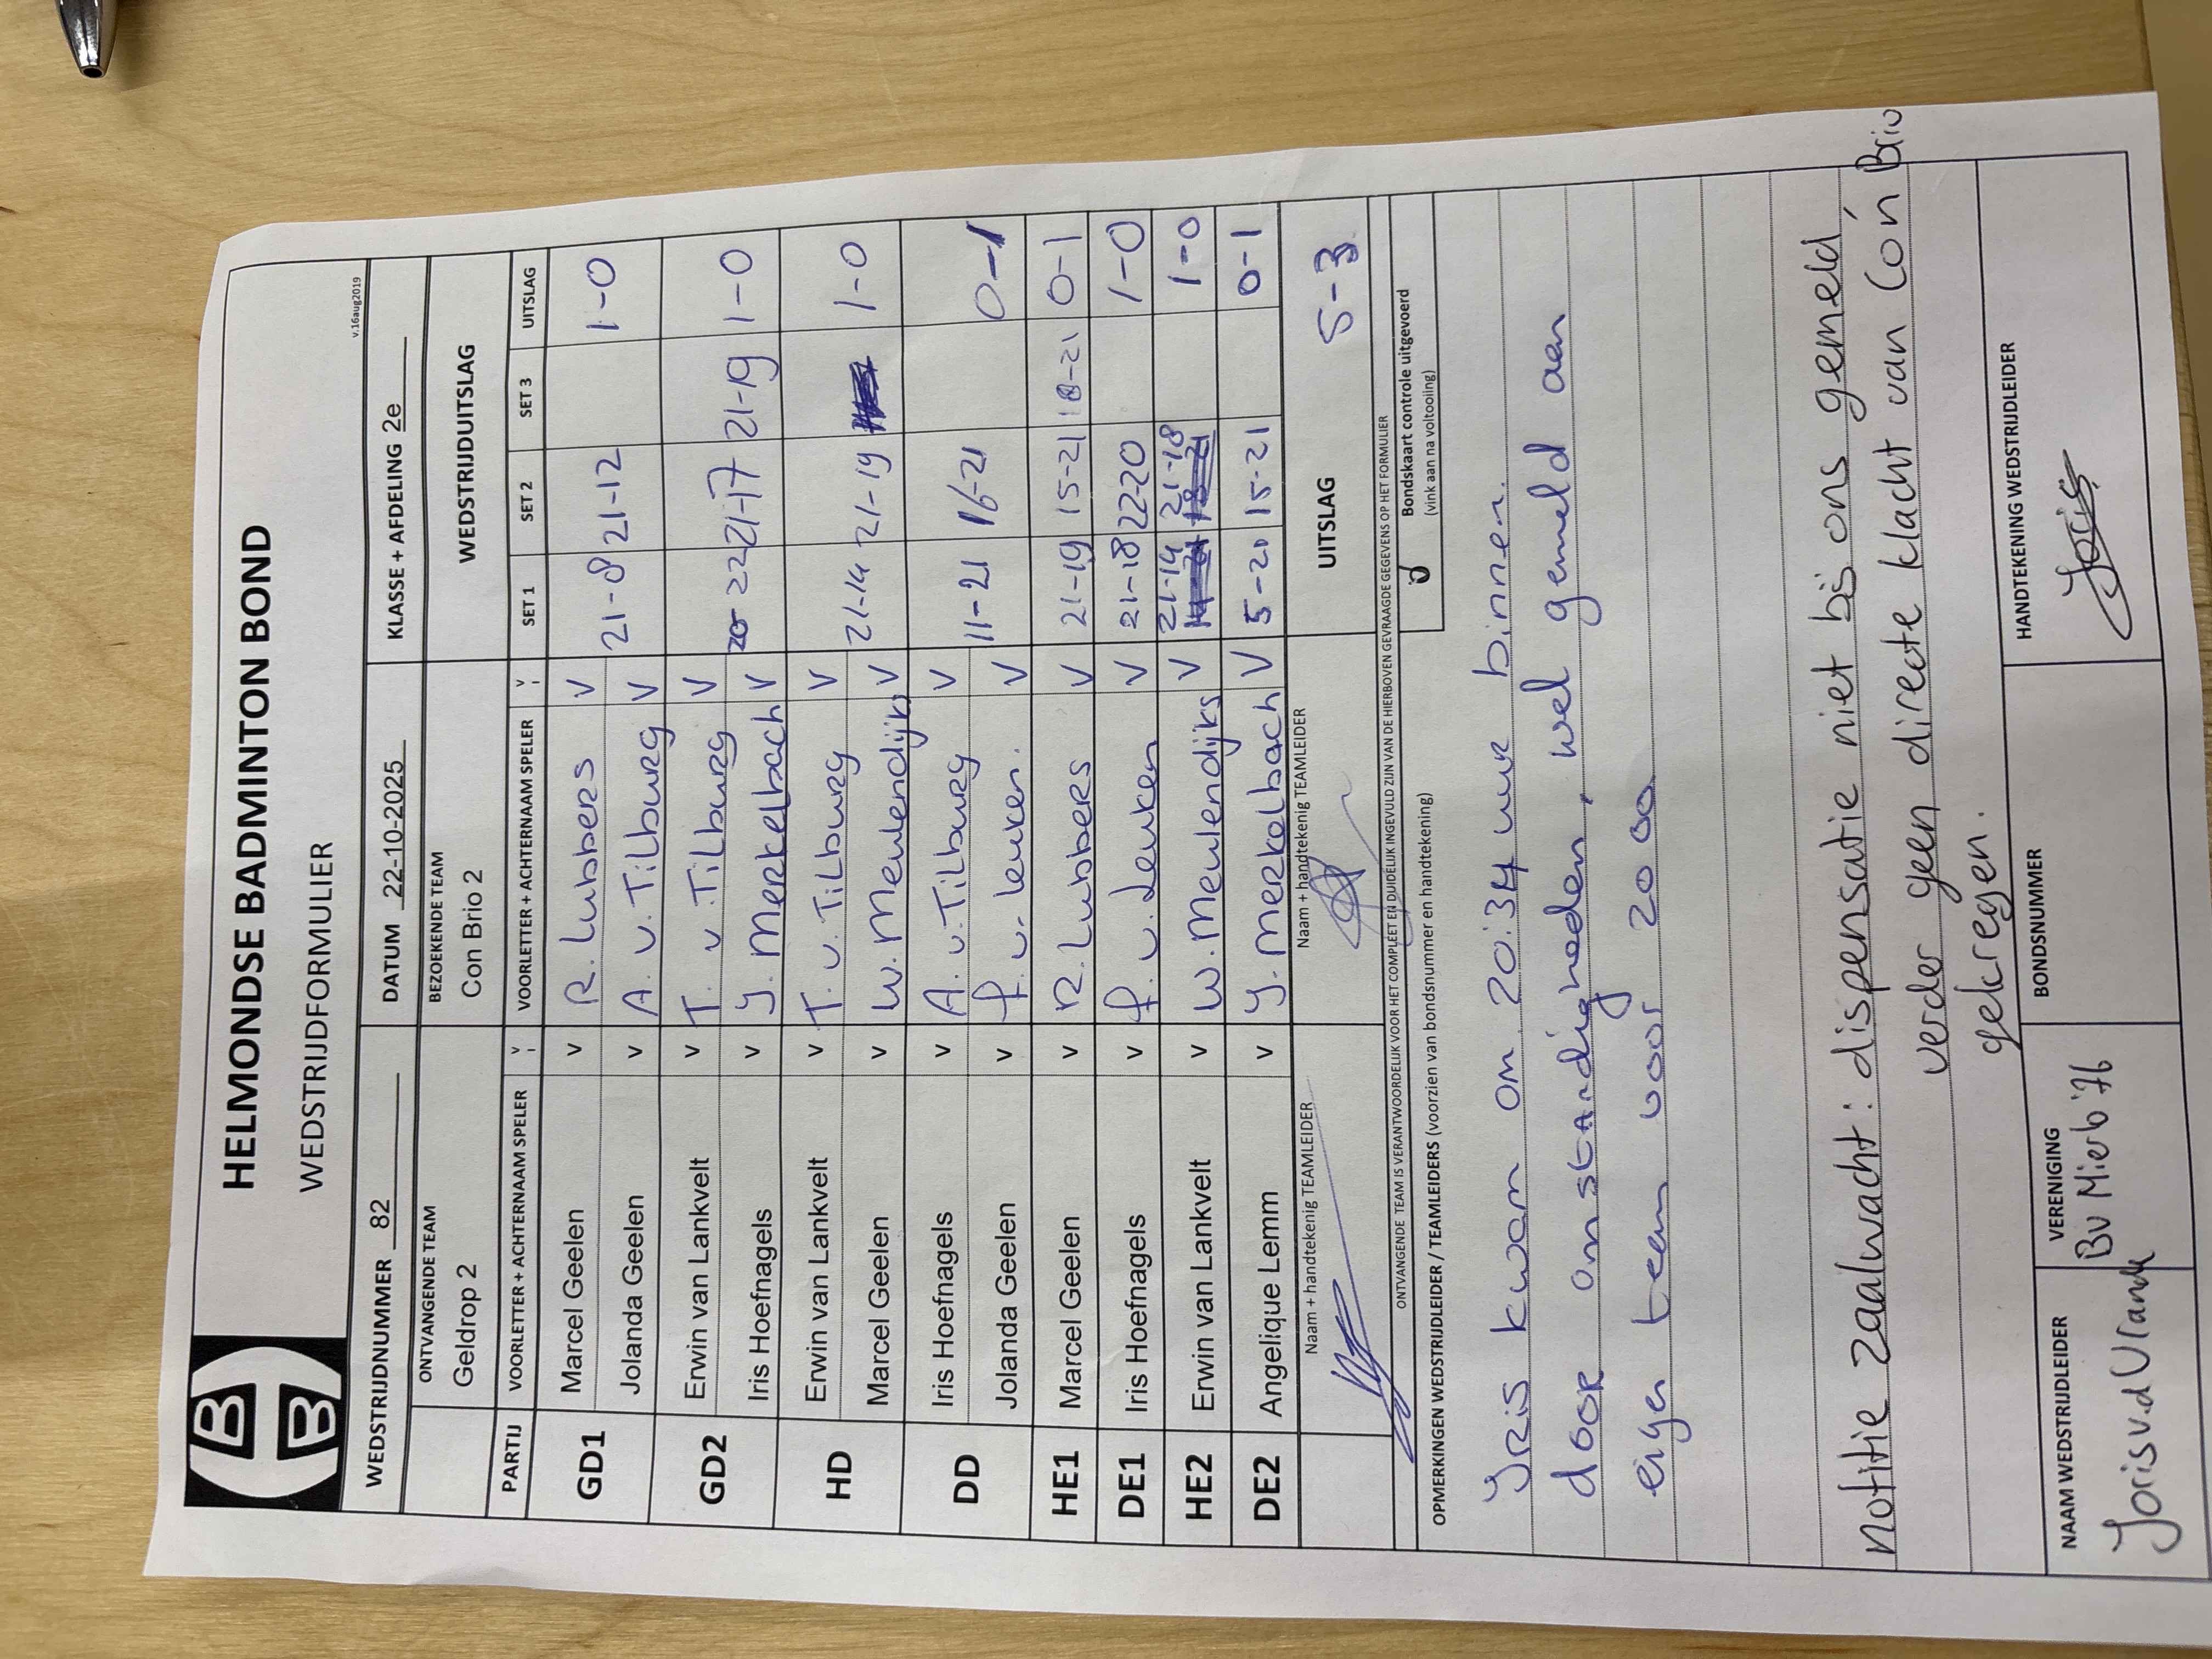 HELMONDSE BADMINTON BOND
WEDSTRIJDFORMULIER
v.16aug2019
WEDSTRIJDNUMMER 82 DATUM 22-10-2025 KLASSE + AFDELING 2e
ONTVANGENDE TEAM BEZOEKENDE TEAM WEDSTRIJDUITSLAG
Geldrop 2 Con Brio 2
PARTIJ VOORLETTER + ACHTERNAAM SPELER V VOORLETTER + ACHTERNAAM SPELER V SET 1 SET 2 SET 3 UITSLAG
GD1 Marcel Geelen v R. Lubbers V
Jolanda Geelen v A v. Tilburg V 21-8 21-12 1-0
GD2 Erwin van Lankvelt v T. v. Tilburg V
Iris Hoefnagels v Y. Merkelbach V 20-22 21-17 21-19 1-0
HD Erwin van Lankvelt v T. v. Tilburg V
Marcel Geelen v W. Meulendijks V 21-14 21-19 1-0
DD Iris Hoefnagels v A. v. Tilburg V
Jolanda Geelen v f. v. leuken. V 11-21 16-21 0-1
HE1 Marcel Geelen v R. Lubbers V 21-19 15-21 18-21 0-1
DE1 Iris Hoefnagels v f. v. Leuken V 21-18 22-20 1-0
HE2 Erwin van Lankvelt v W. Meulendijks V 21-14 21-18 1-0
DE2 Angelique Lemm v Y. Merkelbach V 5-20 15-21 0-1
Naam + handtekenig TEAMLEIDER Naam + handtekenig TEAMLEIDER UITSLAG 5-3
ONTVANGENDE TEAM IS VERANTWOORDELIJK VOOR HET COMPLEET EN DUIDELIJK INGEVULD ZIJN VAN DE HIERBOVEN GEVRAAGDE GEGEVENS OP HET FORMULIER
OPMERKINGEN WEDSTRIJDLEIDER / TEAMLEIDERS (voorzien van bondsnummer en handtekening)
Bondskaart controle uitgevoerd
(vink aan na voltooiing)
Yris kwam om 20:34 uur binnen.
door omstandigheden, wel gemeld aan
eigen team voor 20 00
notitie zaalwacht: dispensatie niet bij ons gemeld,
verder geen directe klacht van Con Brio
gekregen.
NAAM WEDSTRIJDLEIDER VERENIGING BONDSNUMMER HANDTEKENING WEDSTRIJDLEIDER
Joris v.d Vrande BV Mierlo '76 Joris